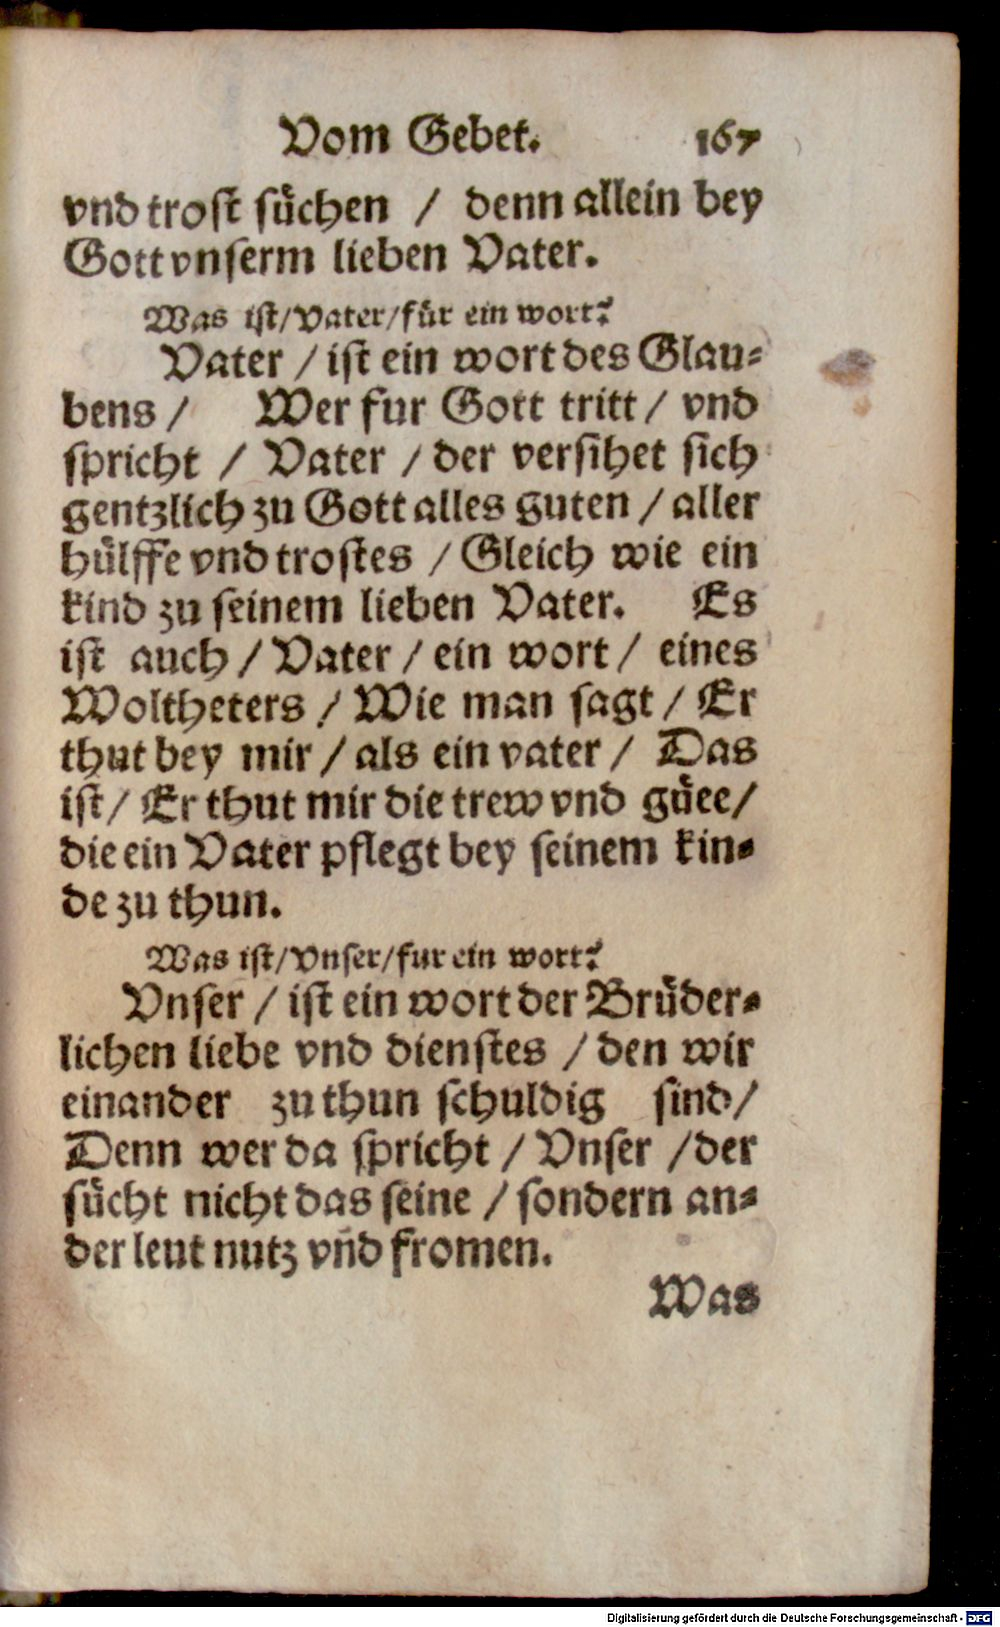 Vom Gebet. 167
vnd trost sůchen / denn allein bey
Gott vnserm lieben Vater.
Was ist/Vater/fůr ein wort?
Vater / ist ein wort des Glau-
bens / Wer fur Gott tritt / vnd
spricht / Vater / der versihet sich
gentzlich zu Gott alles guten / aller
hůlffe vnd trostes / Gleich wie ein
kind zu seinem lieben Vater. Es
ist auch / Vater / ein wort / eines
Woltheters / Wie man sagt / Er
thut bey mir / als ein vater / Das
ist / Er thut mir die trew vnd gůee /
die ein Vater pflegt bey seinem kin-
de zu thun.
Was ist/Vnser/fur ein wort?
Vnser / ist ein wort der Brůder-
lichen liebe vnd dienstes / den wir
einander zu thun schuldig sind /
Denn wer da spricht / Vnser / der
sůcht nicht das seine / sondern an-
der leut nutz vñd fromen.
Was
Digitalisierung gefördert durch die Deutsche Forschungsgemeinschaft - DFG